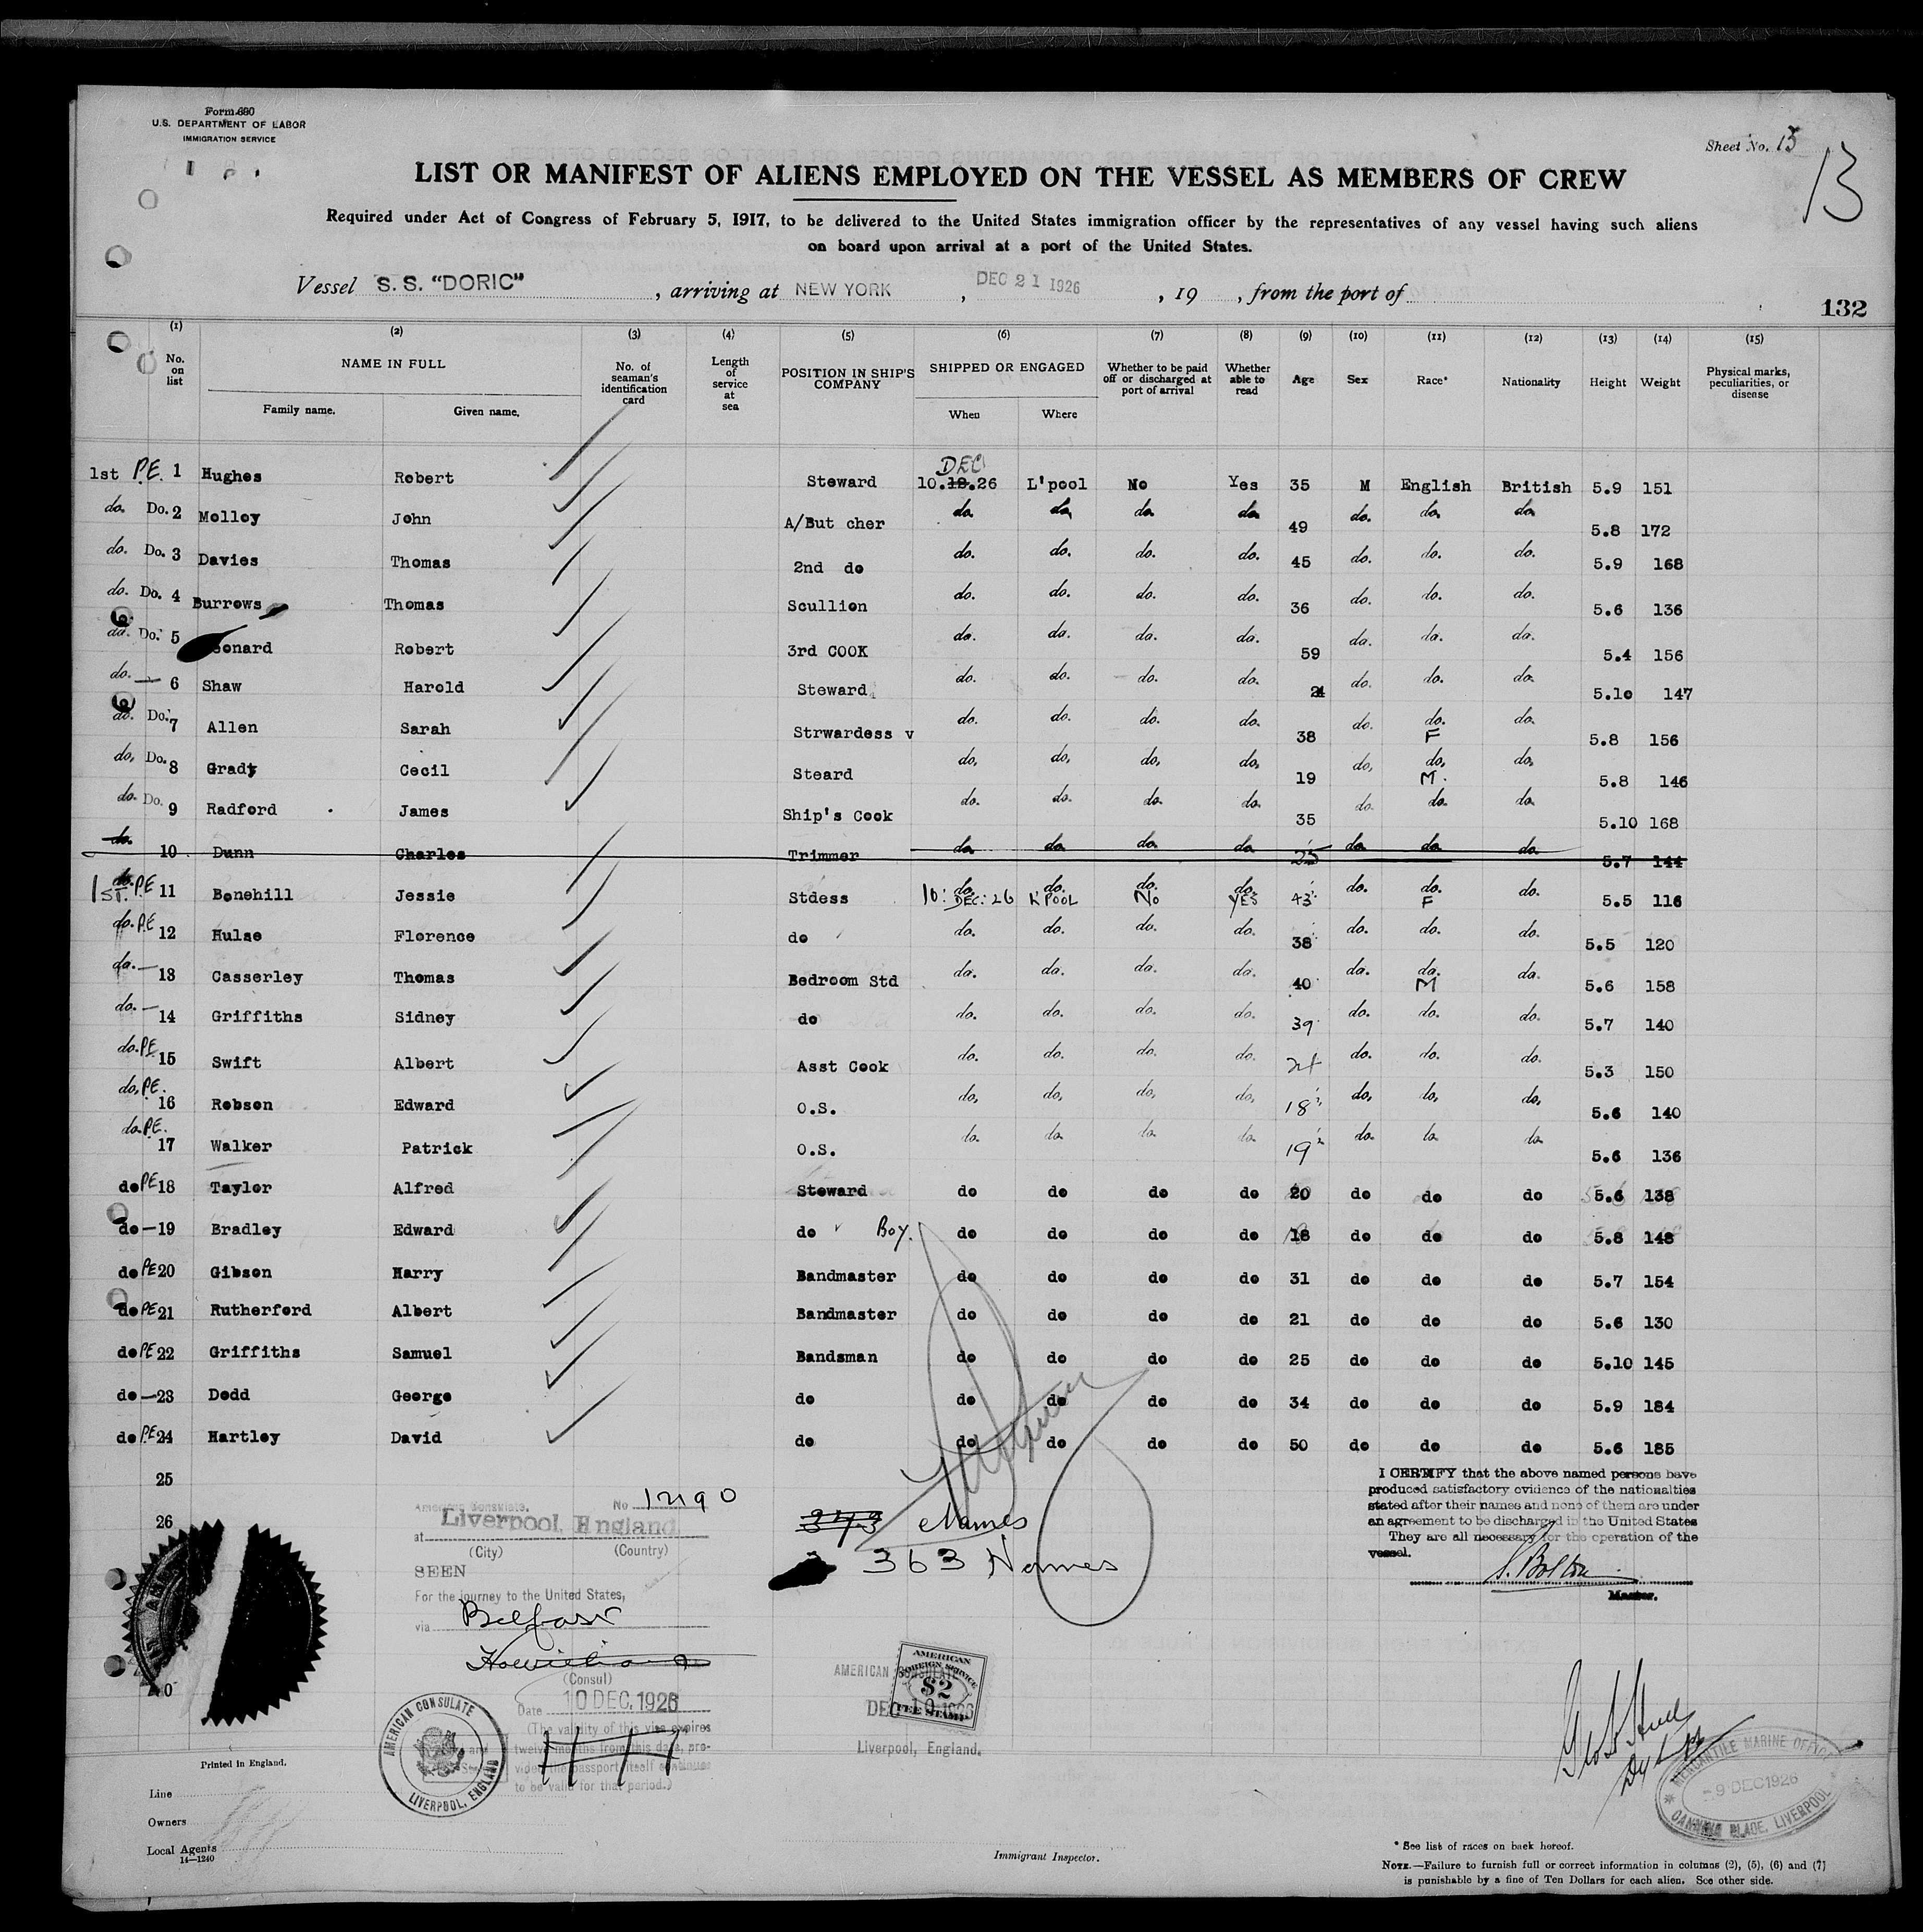 Form 680
U.S. DEPARTMENT OF LABOR
IMMIGRATION SERVICE
Sheet No. 13
13
LIST OR MANIFEST OF ALIENS EMPLOYED ON THE VESSEL AS MEMBERS OF CREW
Required under Act of Congress of February 5, 1917, to be delivered to the United States immigration officer by the representatives of any vessel having such aliens
on board upon arrival at a port of the United States.
Vessel S. S. "DORIC" , arriving at NEW YORK , DEC 21 1926 , 19 , from the port of
132
(1) (2) (3) (4) (5) (6) (7) (8) (9) (10) (11) (12) (13) (14) (15)
No. on list NAME IN FULL Family name. Given name. No. of seaman's identification card Length of service at sea POSITION IN SHIP'S COMPANY SHIPPED OR ENGAGED When Where Whether to be paid off or discharged at port of arrival Whether able to read Age Sex Race* Nationality Height Weight Physical marks, peculiarities, or disease
1st P.E. 1 Hughes Robert Steward 10.12.26 DEC L'pool No Yes 35 M English British 5.9 151
do. Do. 2 Molloy John A/But cher do. do. do. do. 49 do. do. do. 5.8 172
do. Do. 3 Davies Thomas 2nd do do. do. do. do. 45 do. do. do. 5.9 168
do. Do. 4 Burrows Thomas Scullion do. do. do. do. 36 do. do. do. 5.6 136
do. Do. 5 eonard Robert 3rd COOK do. do. do. do. 59 do. do. do. 5.4 156
do. — 6 Shaw Harold Steward do. do. do. do. 24 do. do. do. 5.10 147
do. Do. 7 Allen Sarah Strwardess v do. do. do. do. 38 do. do. F do. 5.8 156
do. Do. 8 Grady Cecil Steard do. do. do. do. 19 do. do. M. do. 5.8 146
do. Do. 9 Radford James Ship's Cook do. do. do. do. 35 do. do. do. 5.10 168
do. 10 Dunn Charles Trimmer do do do do do do do 5.7 144
1st. do. P.E 11 Bonehill Jessie Stdess 10: do. DEC: 26 do. L'POOL do. No do. YES 43 do. do. F do. 5.5 116
do. P.E 12 Hulse Florence do do. do. do. do. 38 do. do. do. 5.5 120
do. — 13 Casserley Thomas Bedroom Std do. do. do. do. 40 do. do. M do. 5.6 158
do. — 14 Griffiths Sidney do do. do. do. do. 39 do. do. do. 5.7 140
do. P.E 15 Swift Albert Asst Cook do. do. do. do. do. do. do. 5.3 150
do. P.E. 16 Robson Edward O.S. do. do. do. do. 18 do. do. do. 5.6 140
do. P.E. 17 Walker Patrick O.S. do. do. do. do. 19 do. do. do. 5.6 136
do PE 18 Taylor Alfred Steward do do do do 20 do do do 5.6 138
do — 19 Bradley Edward do Boy. do do do do 18 do do do 5.8 148
do PE 20 Gibson Harry Bandmaster do do do do 31 do do do 5.7 154
do PE 21 Rutherford Albert Bandmaster do do do do 21 do do do 5.6 130
do PE 22 Griffiths Samuel Bandsman do do do do 25 do do do 5.10 145
do — 23 Dodd George do do do do do 34 do do do 5.9 184
do P.E 24 Hartley David do do do do do 50 do do do 5.6 185
25
26
American Consulate. No 12190
at Liverpool, England
(City) (Country)
SEEN
For the journey to the United States,
via Belfast
(Consul)
Date 10 DEC. 1926
(The validity of this visa expires
twelve months from this date, pro-
vided the passport itself continues
to be valid for that period.)
AMERICAN CONSULATE
LIVERPOOL, ENGLAND
343 Names
363 Names
AMERICAN CONSULATE
DEC 10 1926
Liverpool, England.
AMERICAN
FOREIGN SERVICE
$2
FEE STAMP
I CERTIFY that the above named persons have
produced satisfactory evidence of the nationalties
stated after their names and none of them are under
an agreement to be discharged in the United States
They are all necessary for the operation of the
vessel.
S. Bolton
Master.
MERCANTILE MARINE OFFICE
9 DEC 1926
CANNING PLACE, LIVERPOOL
Printed in England.
Line
Owners
Local Agents
14—1240
Immigrant Inspector.
* See list of races on back hereof.
NOTE.—Failure to furnish full or correct information in columns (2), (5), (6) and (7)
is punishable by a fine of Ten Dollars for each alien. See other side.